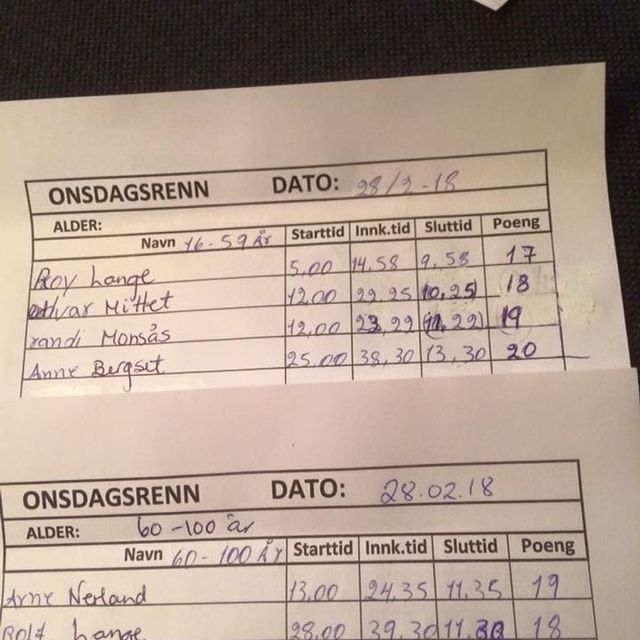 ONSDAGSRENN DATO: 28/2-18
ALDER:
Navn 16-59 År Starttid Innk.tid Sluttid Poeng
Roy Lange 5,00 14,58 9,58 17
Mittet 12,00 22,25 10,25 18
randi Monsås 12,00 23,22 (11,22) 19
Anne Bergset 25,00 38,30 13,30 20
ONSDAGSRENN DATO: 28.02.18
ALDER: 60-100 år
Navn 60-100 År Starttid Innk.tid Sluttid Poeng
Arne Nerland 13,00 24,35 11,35 19
Rolf Lange 28,00 39,30 11,30 18